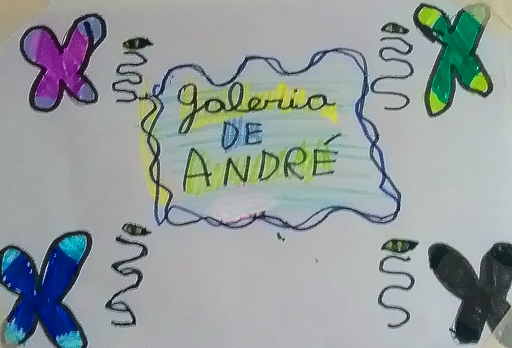 galeria
DE
ANDRÉ